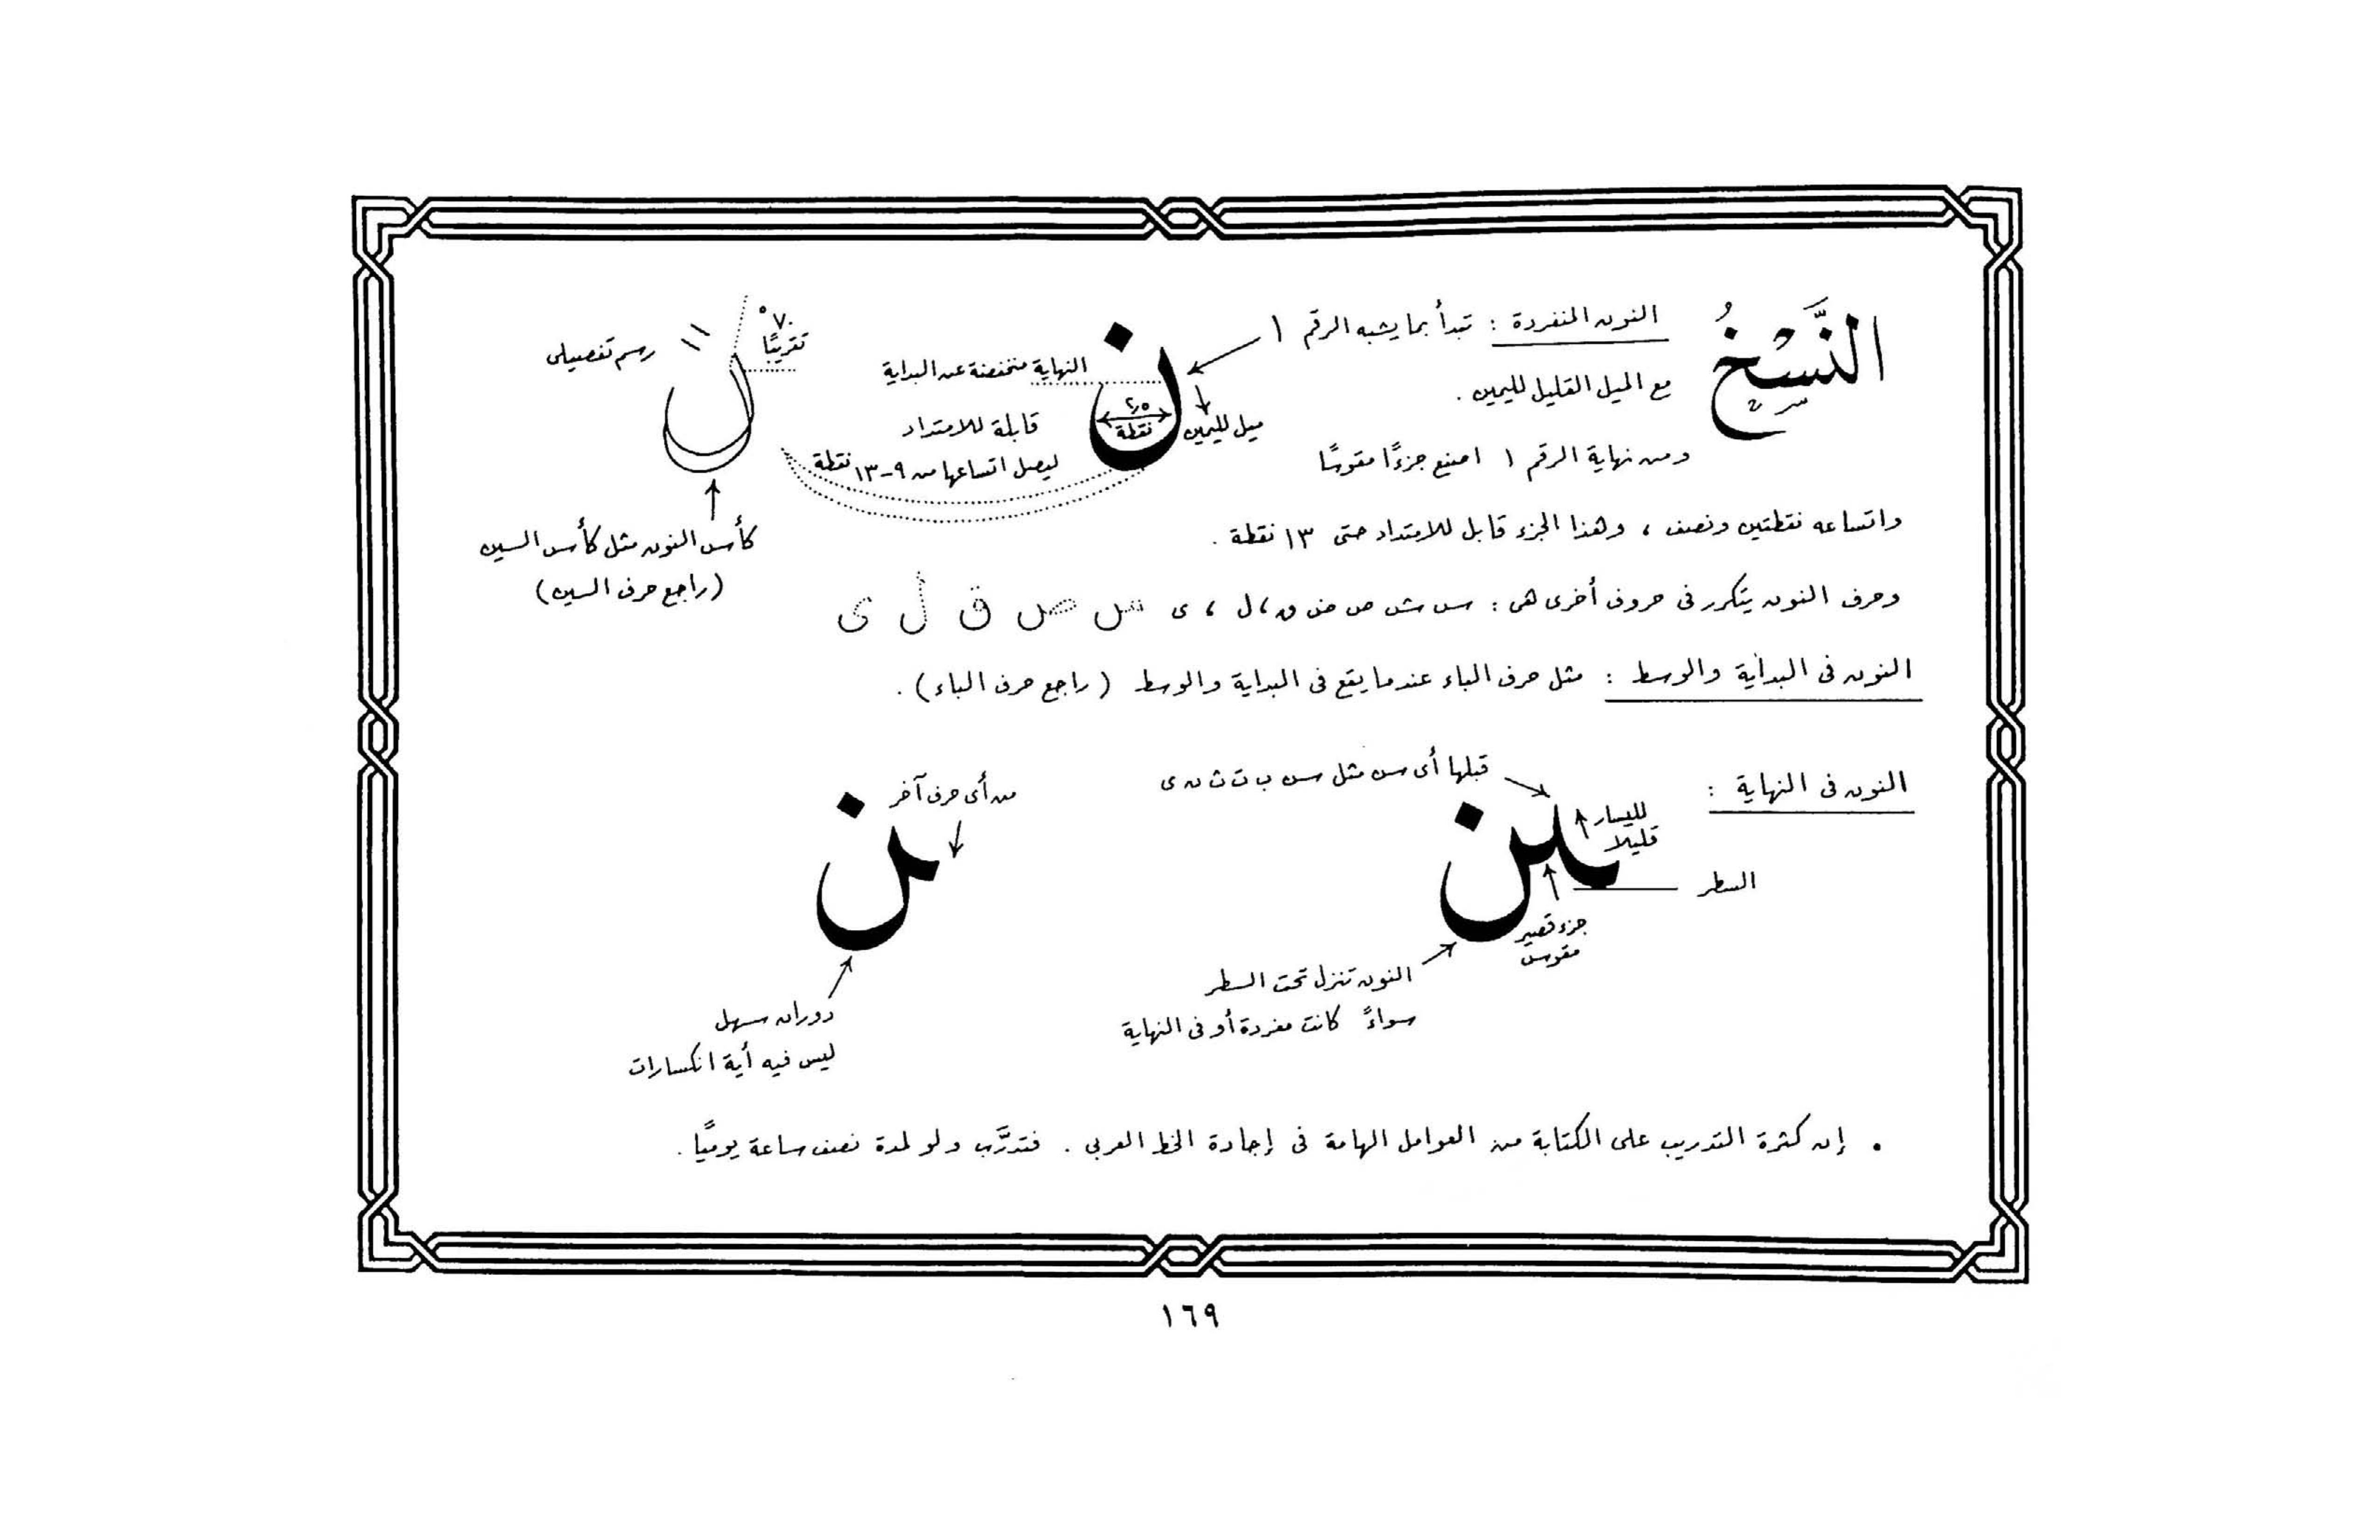 النَّسْخُ
النون المنفردة : تبدأ بما يشبه الرقم ١
مع الميل القليل لليمين .
ومن نهاية الرقم ١ اصنع جزءًا مقوسًا
واتساعه نقطتين ونصف ، وهذا الجزء قابل للامتداد حتى ١٣ نقطة .
ن
ميل لليمين
٢٫٥
نقطة
النهاية منخفضة عن البداية
قابلة للامتداد
ليصل اتساعها من ٩-١٣ نقطة
٧٠°
تقريبًا
رسم تفصيلى
كأس النون مثل كأس السين
(راجع حرف السين)
وحرف النون يتكرر فى حروف أخرى هى : س ش ص ض ق ، ل ، ى س ص ق ل ى
النون فى البداية والوسط : مثل حرف الباء عندما يقع فى البداية والوسط (راجع حرف الباء) .
النون فى النهاية :
قبلها أى سن مثل سن ب ت ث ن ى
لليسار
قليلا
السطر
جزء قصير
مقوس
النون تنزل تحت السطر
سواءً كانت مفردة أو فى النهاية
من أى حرف آخر
دوران سهل
ليس فيه أية انكسارات
• إن كثرة التدريب على الكتابة من العوامل الهامة فى إجادة الخط العربى . فتدرَّب ولو لمدة نصف ساعة يوميًا .
١٦٩